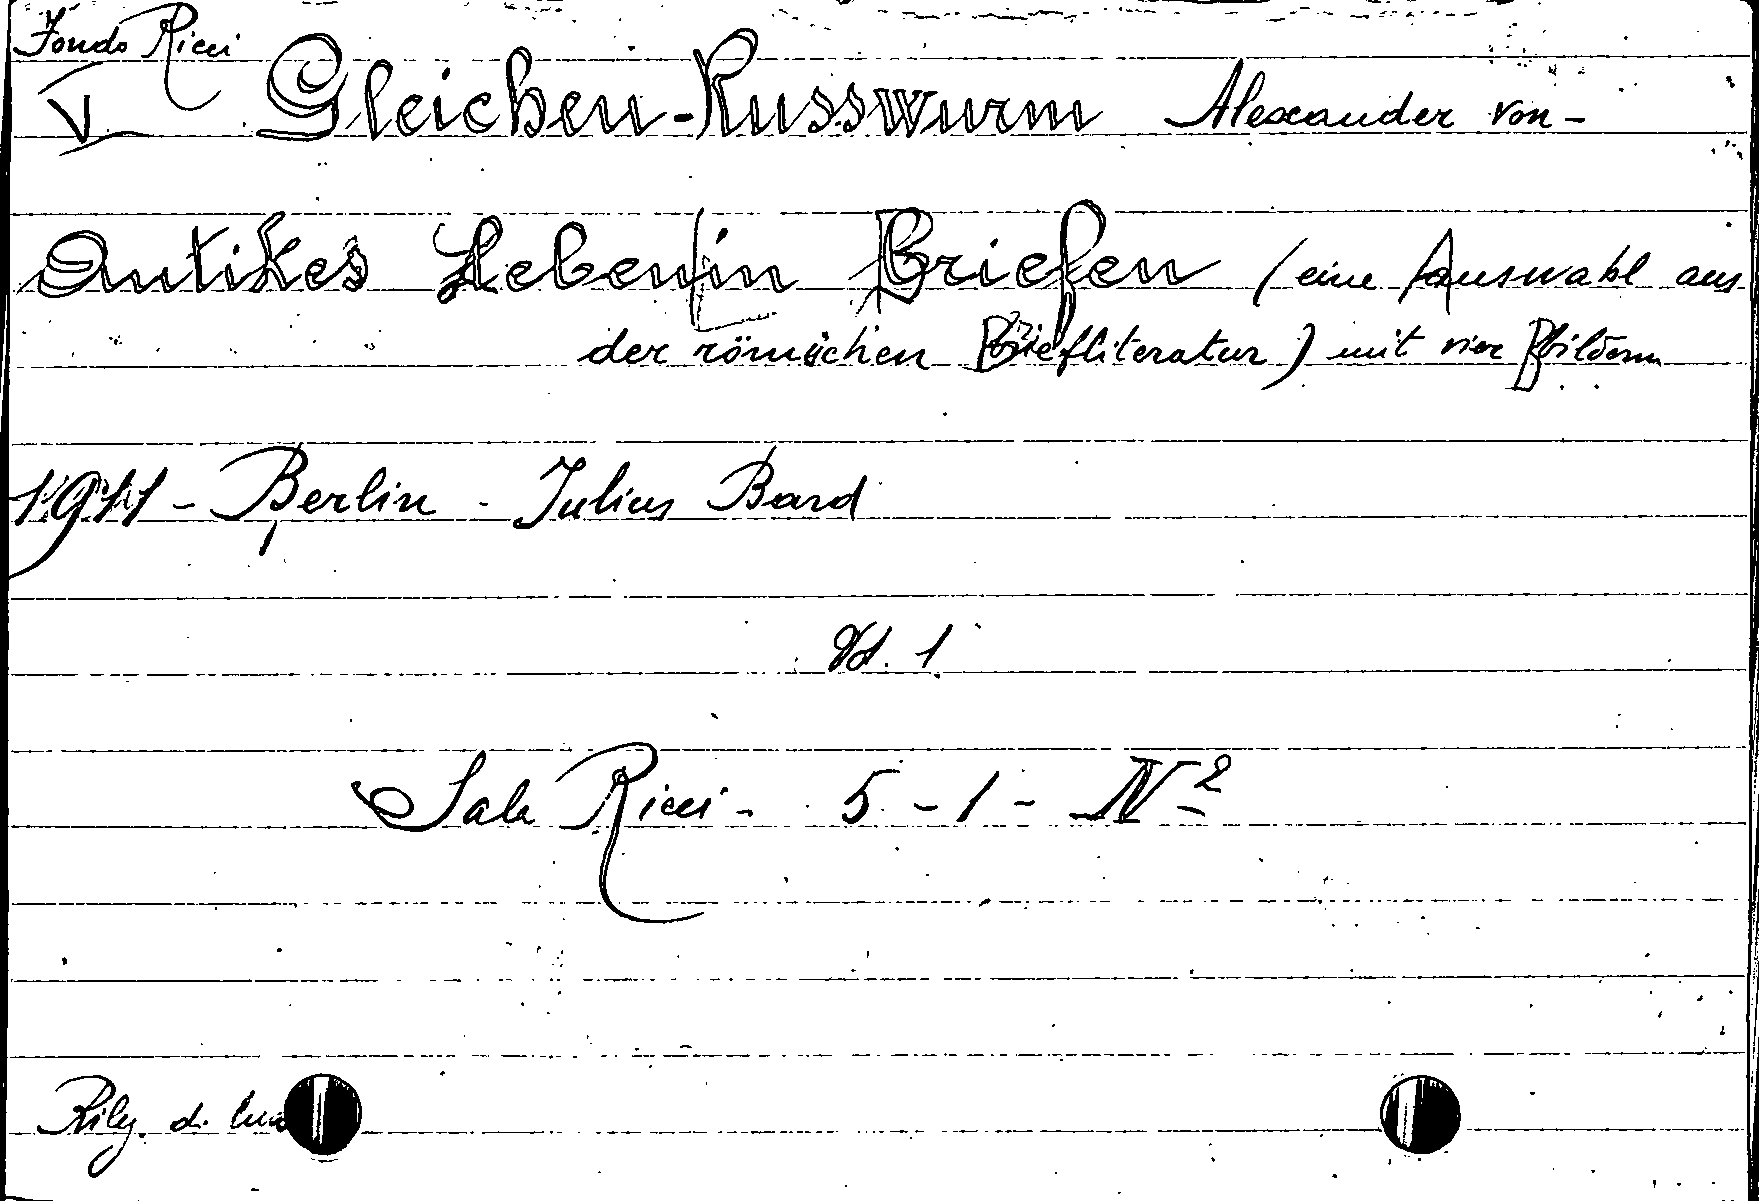 Fondo Ricci
V Gleichen-Russwurm Alexander von -
Antikes Leben in Briefen (eine Auswahl aus
der römischen Briefliteratur) mit vier Bildern
1911 - Berlin - Julius Bard
Vol. 1
Sala Ricci - 5 - 1 - N 2
Rileg. d.